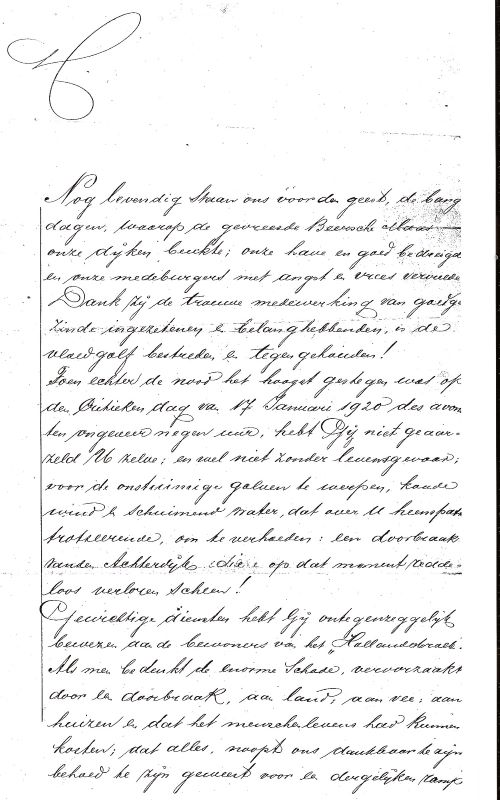 Nog levendig staan ons voor den geest, de bang
dagen, waarop de gevreesde Beersche Maas
onze dijken beukte; onze have en goed bedreigde
en onze medeburgers met angst en vrees vervulde
Dank zij de trouwe medewerking van goedge
zinde ingezetenen en belanghebbenden, is de
vloedgolf bestreden en tegengehouden!
Toen echter de nood het hoogst gestegen was op
den Critieken dag van 17 Januari 1920 des avon
ten ongeveer negen uur, hebt Gij niet geaar-
zeld U zelve; en wel niet zonder levensgevaar;
voor de onstuimige golven te werpen, koude
wind en schuimend water, dat over U heenspatte
trotseerende, om te verhoeden: een doorbraak
van den Achterdijk die op dat moment redde-
loos verloren scheen!
Gewichtige diensten hebt Gij ontegenzeggelijk
bewezen aan de bewoners van het "Hollanderbroek".
Als men bedenkt de enorme schade, veroorzaakt
door een doorbraak, aan land; aan vee; aan
huizen en dat het menschenlevens had kunnen
kosten; dat alles, noopt ons dankbaar te zijn
behoed te zijn geweest voor een dergelijken ramp